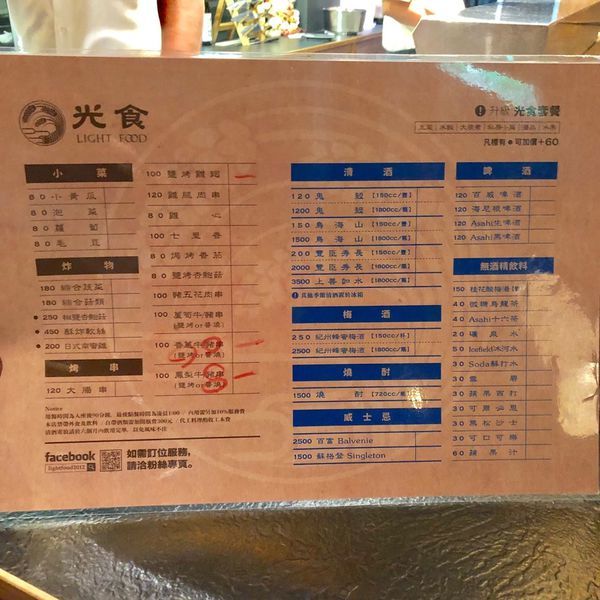 光食
LIGHT FOOD
升級 光食套餐
凡標有 ● 可加價+60
小菜
80 小黃瓜
80 泡菜
80 蘿蔔
80 毛豆
炸物
180 綜合蔬菜
180 綜合菇類
●250 椒鹽杏鮑菇
●450 酥炸軟絲
●200 日式南蠻雞
烤串
120 大腸串
100 鹽烤雞翅
120 雞腿肉串
80 雞心
100 七里香
80 焗烤香菇
80 鹽烤杏鮑菇
100 豬五花肉串
100 蘆筍牛/豬串
(鹽烤or醬燒)
100 香蔥牛/豬串
(鹽烤or醬燒)
100 鳳梨牛/豬串
(鹽烤or醬燒)
Notice
facebook
lightfood2012
如需訂位服務,
請洽粉絲專頁。
清酒
120 鬼鮫 [150cc/壺]
1200 鬼鮫 [1800cc/瓶]
150 鳥海山 [150cc/壺]
1500 鳥海山 [1800cc/瓶]
200 豐臣秀長 [150cc/壺]
2000 豐臣秀長 [1800cc/瓶]
3500 上善如水 [1800cc/瓶]
其他季節清酒置於冰箱
梅酒
250 紀州蜂蜜梅酒 [150cc/杯]
2500 紀州蜂蜜梅酒 [1800cc/瓶]
燒酎
1500 燒酎 [720cc/瓶]
威士忌
2500 百富 Balvenie
1500 蘇格登 Singleton
啤酒
120 百威啤酒
120 海尼根啤酒
120 Asahi生啤酒
120 Asahi黑啤酒
無酒精飲料
150 桂花酸梅湯
40 微糖烏龍茶
40 Asahi十六茶
20 礦泉水
50 Icefield冰河水
30 Soda蘇打水
30 雪碧
30 蘋果西打
30 可爾必思
30 黑松沙士
30 可口可樂
60 蘋果汁